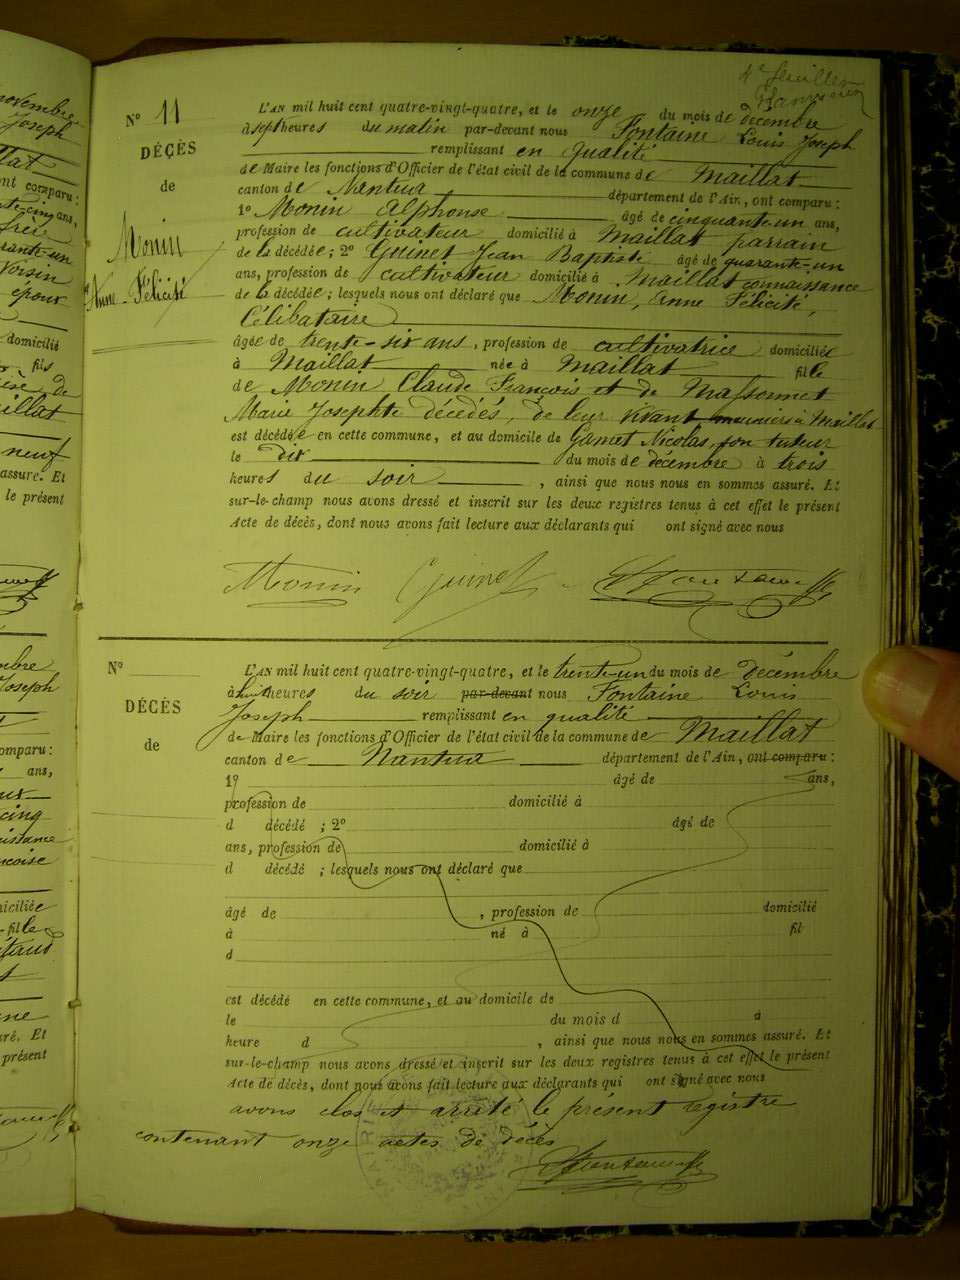 novembre
Joseph
llat
ont comparu :
nte-cinq ans,
frère
rante-un
Voisin
époux
domicilié
fils
de
aillat
neuf
assuré. Et
le présent
mbre
Joseph
omparu :
ans,
cinq
issance
ncoise
miciliée
fille
t
ré. Et
présent
4e feuillet
N° 11
DÉCÈS
de
Monin
Anne-Félicité
L'AN mil huit cent quatre-vingt-quatre, et le onze du mois de décembre
à sept heures du matin par-devant nous Fontaine Louis Joseph
remplissant en qualité
de Maire les fonctions d'Officier de l'état civil de la commune de Maillat
canton de Nantua département de l'Ain, ont comparu :
1° Monin Alphonse âgé de cinquante-un ans,
profession de cultivateur domicilié à Maillat parrain
de la décédée ; 2° Guinet Jean Baptiste âgé de quarante-un
ans, profession de cultivateur domicilié à Maillat connaissance
de la décédée ; lesquels nous ont déclaré que Monin, Anne Félicité,
Célibataire
âgée de trente-six ans, profession de cultivatrice domiciliée
à Maillat née à Maillat fille
de Monin Claude François et de Massonnet
Marie Josephte décédés, de leur vivant à Maillat
est décédée en cette commune, et au domicile de Gamet Nicolas, son tuteur
le dix du mois de décembre à trois
heures du soir , ainsi que nous nous en sommes assuré. Et
sur-le-champ nous avons dressé et inscrit sur les deux registres tenus à cet effet le présent
Acte de décès, dont nous avons fait lecture aux déclarants qui ont signé avec nous
Monin Guinet
N°
DÉCÈS
de
L'AN mil huit cent quatre-vingt-quatre, et le trente-un du mois de décembre
à huit heures du soir par-devant nous Fontaine Louis
Joseph remplissant en qualité
de Maire les fonctions d'Officier de l'état civil de la commune de Maillat
canton de Nantua département de l'Ain, ont comparu :
1° âgé de ans,
profession de domicilié à
d décédé ; 2° âgé de
ans, profession de domicilié à
d décédé ; lesquels nous ont déclaré que
âgé de , profession de domicilié
à né à fil
d
est décédé en cette commune, et au domicile de
le du mois d à
heure d , ainsi que nous nous en sommes assuré. Et
sur-le-champ nous avons dressé et inscrit sur les deux registres tenus à cet effet le présent
Acte de décès, dont nous avons fait lecture aux déclarants qui ont signé avec nous
avons clos et arrêté le présent registre
contenant onze actes de décès